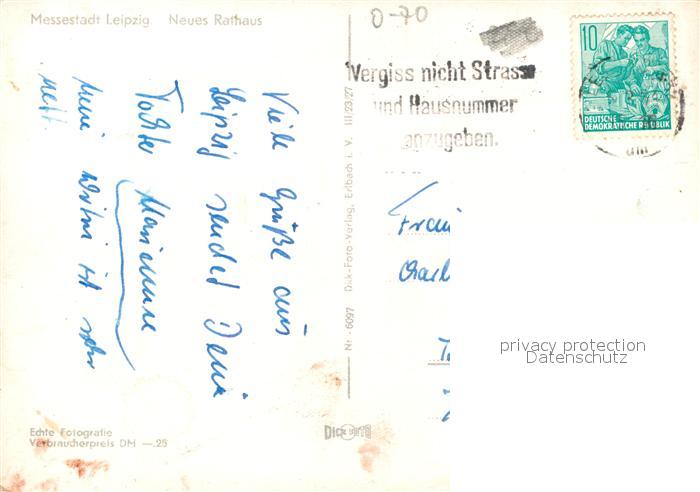 Messestadt Leipzig   Neues Rathaus
0-70
Vergiss nicht Strasse
und Hausnummer
anzugeben.
10
DEUTSCHE
DEMOKRATISCHE REPUBLIK
Viele Grüße aus
Leipzig sendet Deine
Tochter Marianne
meine Wirtin ist sehr
nett.
Nr. 6097 Dick-Foto-Verlag, Erlbach i. V. III/23/27
Frau
Charl
privacy protection
Datenschutz
Echte Fotografie
Verbraucherpreis DM —.25
DICK FOTO